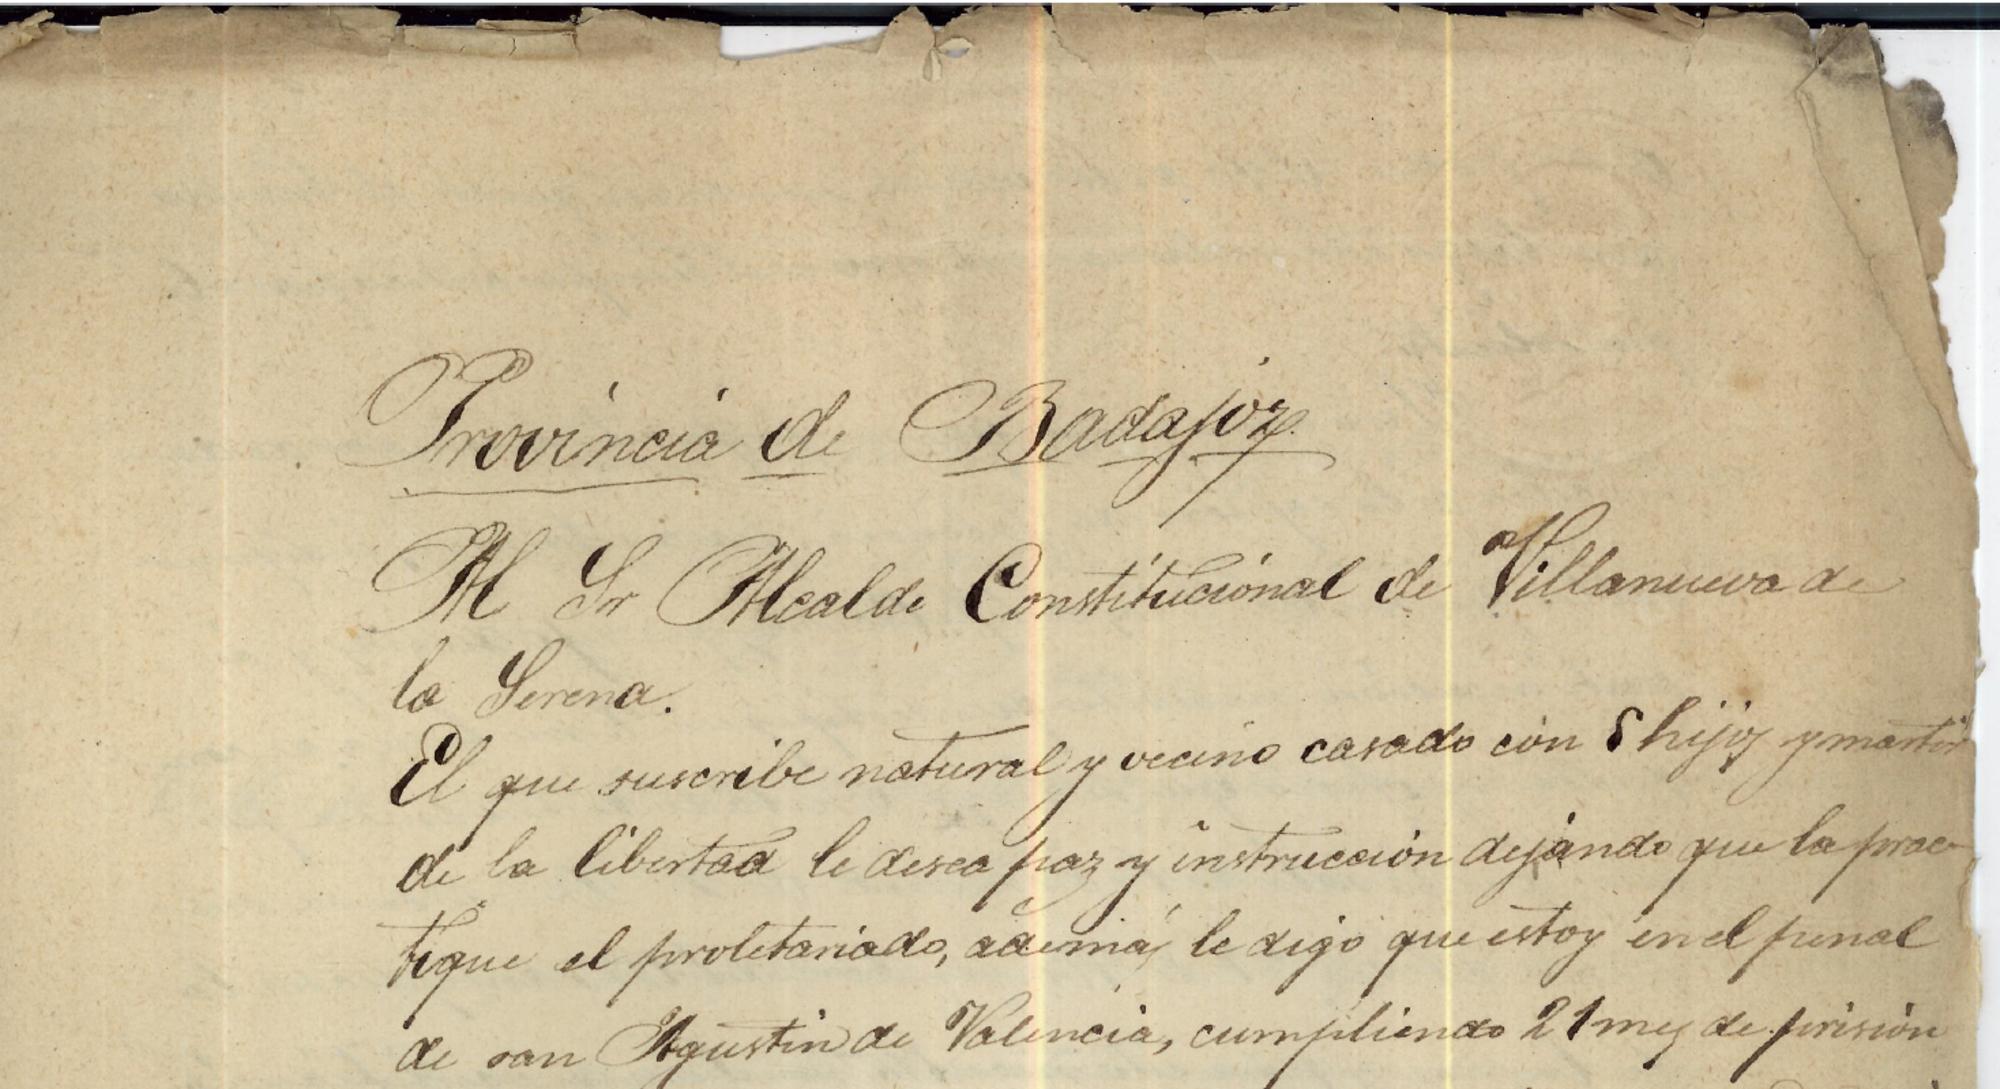 Provincia de Badajoz.
Al Sr Alcalde Constitucional de Villanueva de
la Serena.
El que suscribe natural y vecino casado con 5 hijos y martir
de la libertad le desea paz y instrucción dejando que la prac-
tique el proletariado, además le digo que estoy en el penal
de san Agustin de Valencia, cumpliendo 21 mes de prisión